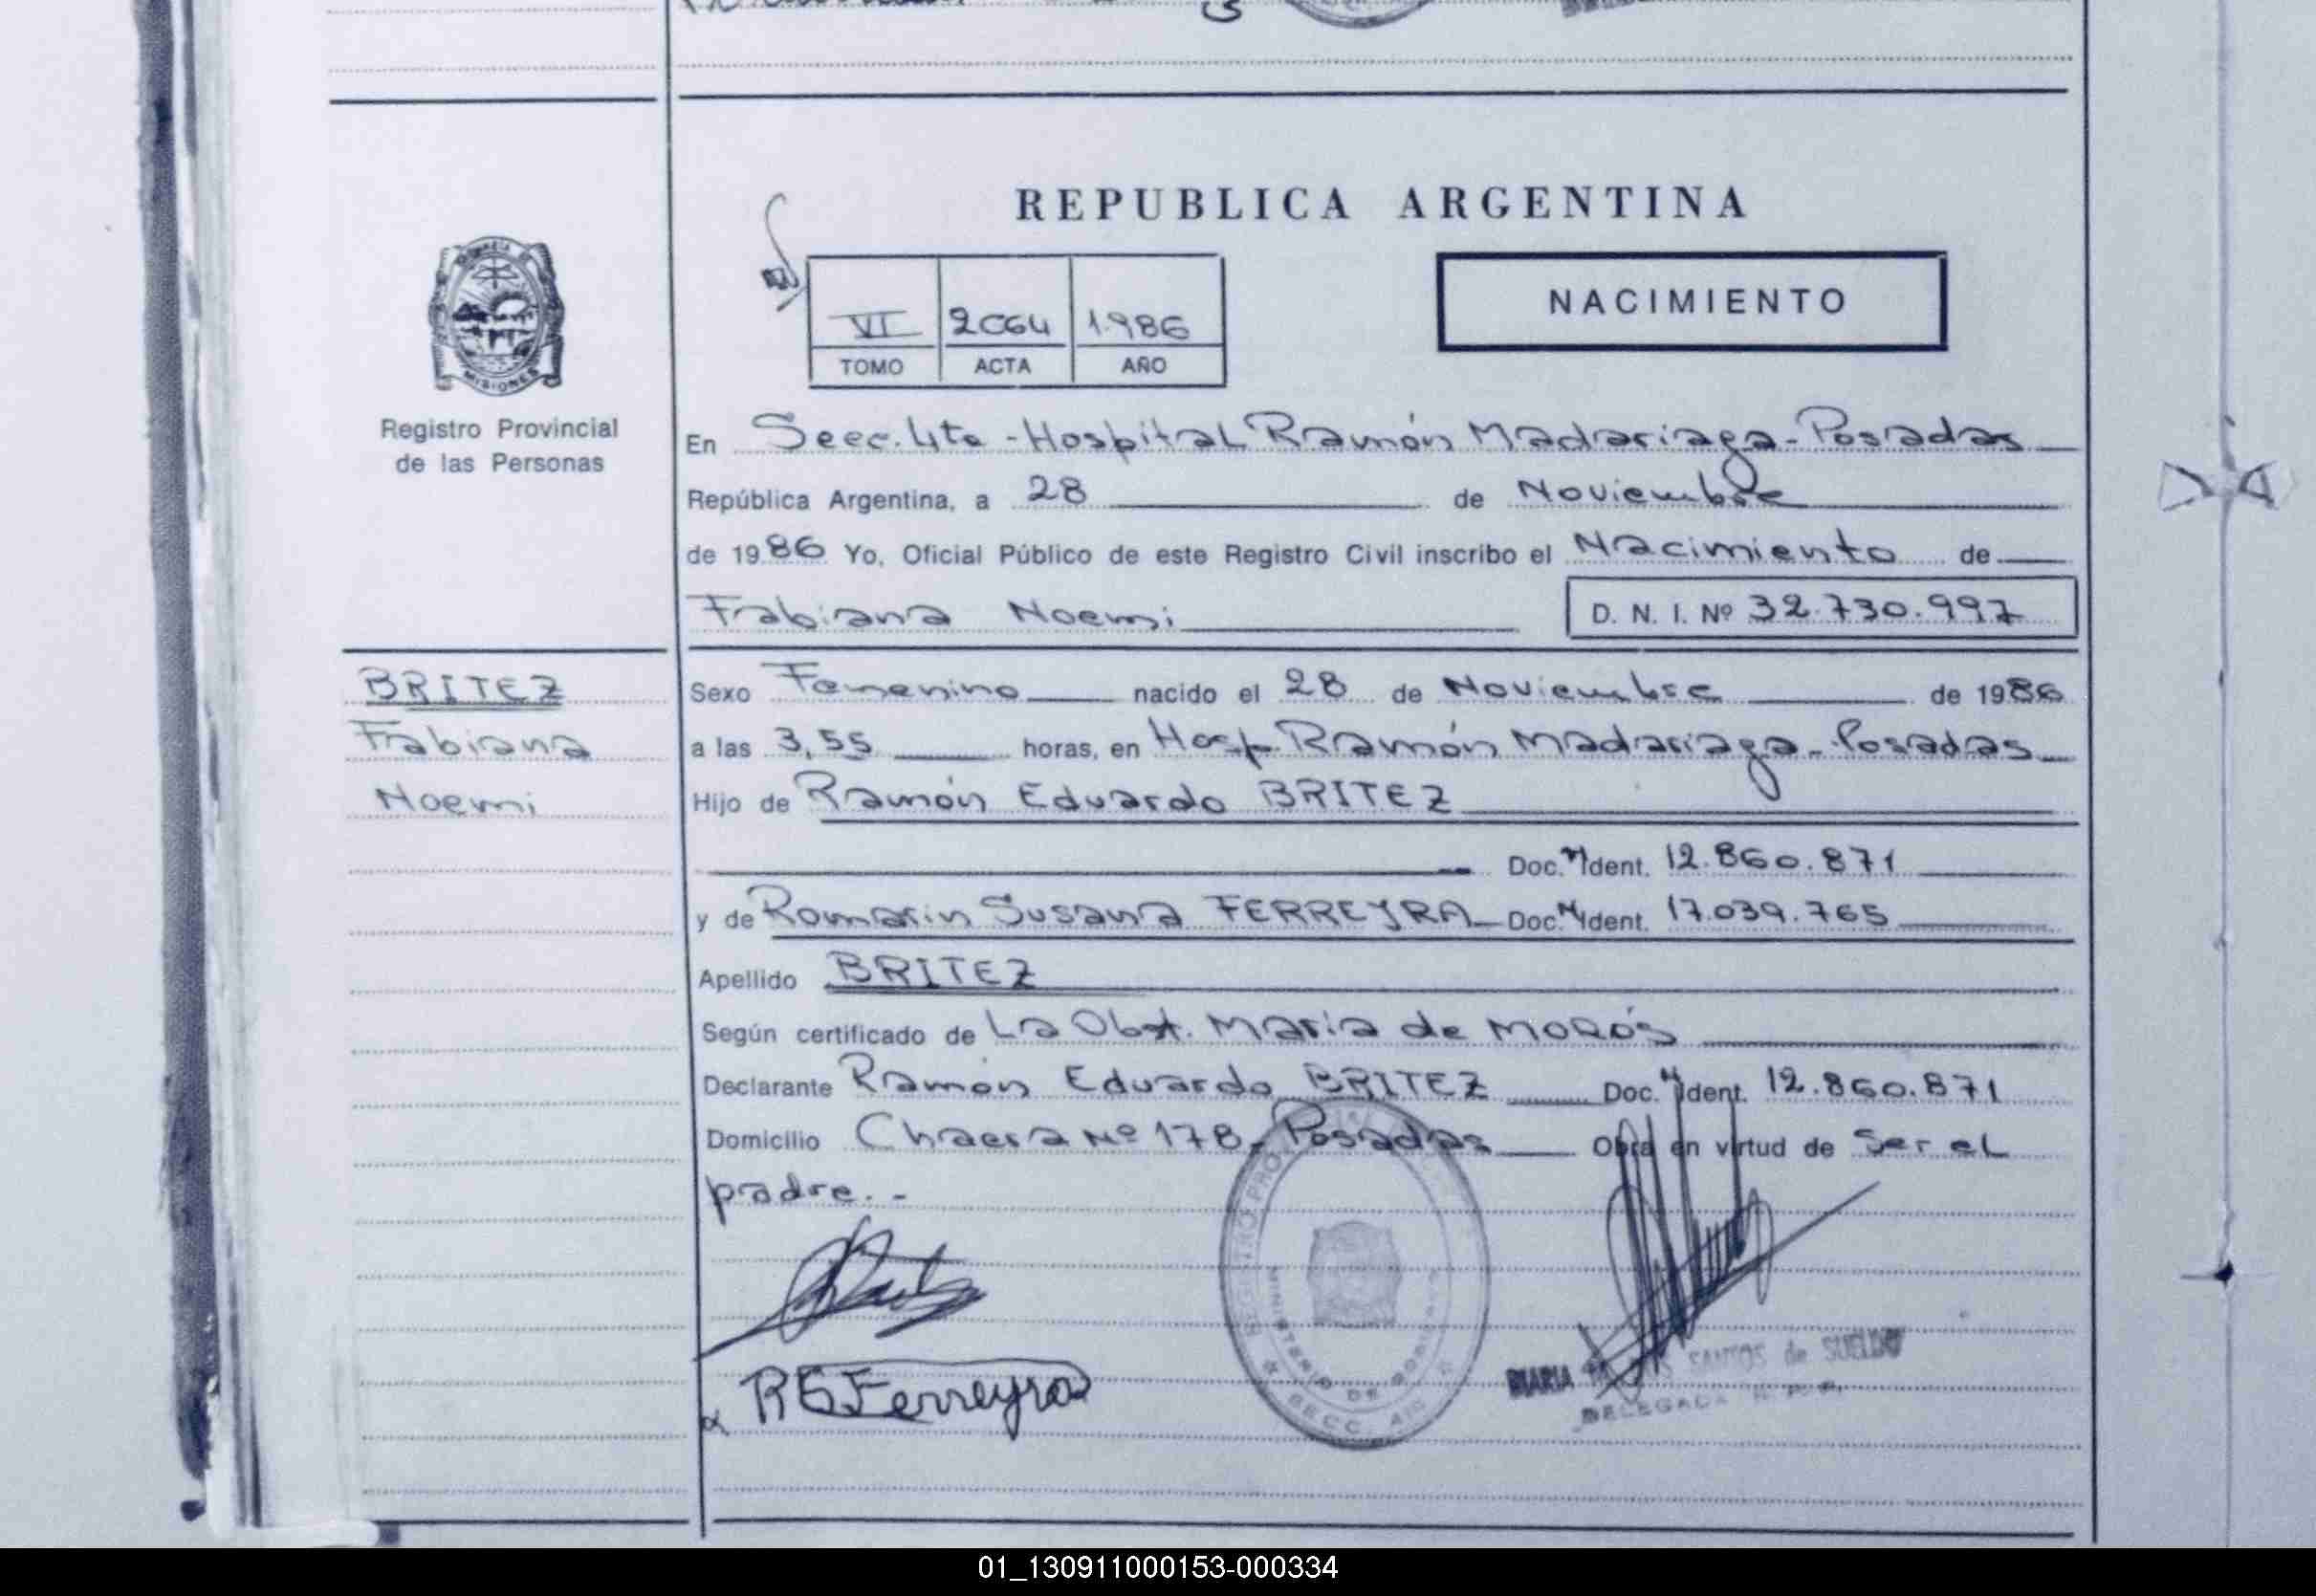 REPUBLICA ARGENTINA
VI 2064 1.986
TOMO ACTA AÑO
NACIMIENTO
MISIONES
Registro Provincial
de las Personas
En Secc. 4ta - Hospital Ramón Madariaga - Posadas
República Argentina, a 28 de Noviembre
de 1986 Yo, Oficial Público de este Registro Civil inscribo el Nacimiento de
Fabiana Noemi D. N. I. Nº 32.730.997
BRITEZ
Fabiana
Noemi
Sexo Femenino nacido el 28 de Noviembre de 1986
a las 3,55 horas, en Hosp. Ramón Madariaga - Posadas
Hijo de Ramón Eduardo BRITEZ
Doc. Ident. 12.860.871
y de Romarin Susana FERREYRA Doc. Ident. 17.039.765
Apellido BRITEZ
Según certificado de La Obst. Maria de
Declarante Ramón Eduardo BRITEZ Doc. Ident. 12.860.871
Domicilio Chacra Nº 178 - Posadas Obra en virtud de Ser el
padre. -
REGISTRO
MINISTERIO DE
SECC.
RSFerreyra
MARIA SANTOS de SUELDO
DELEGADA
01_130911000153-000334